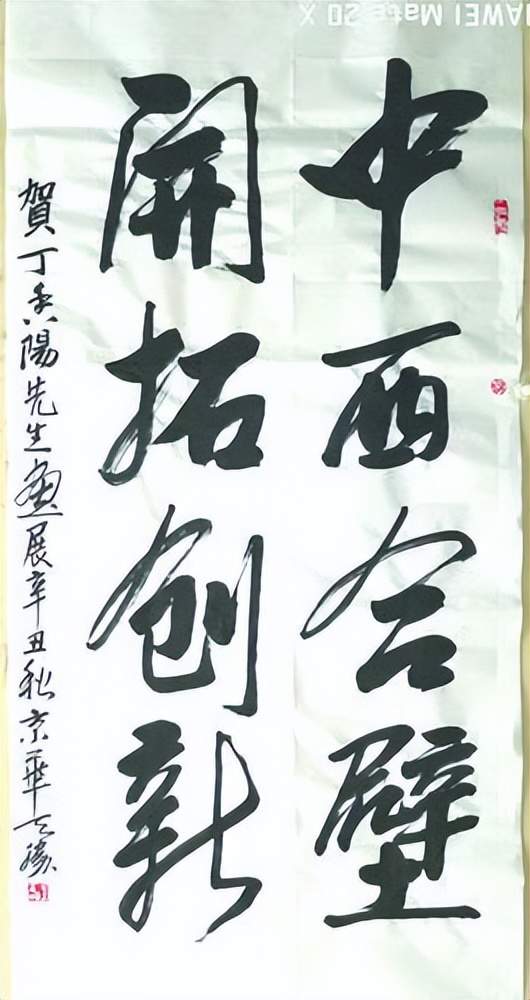 中西合壁
開拓创新
賀丁陽先生畫展辛丑秋京華
AWEI Mate 20 X